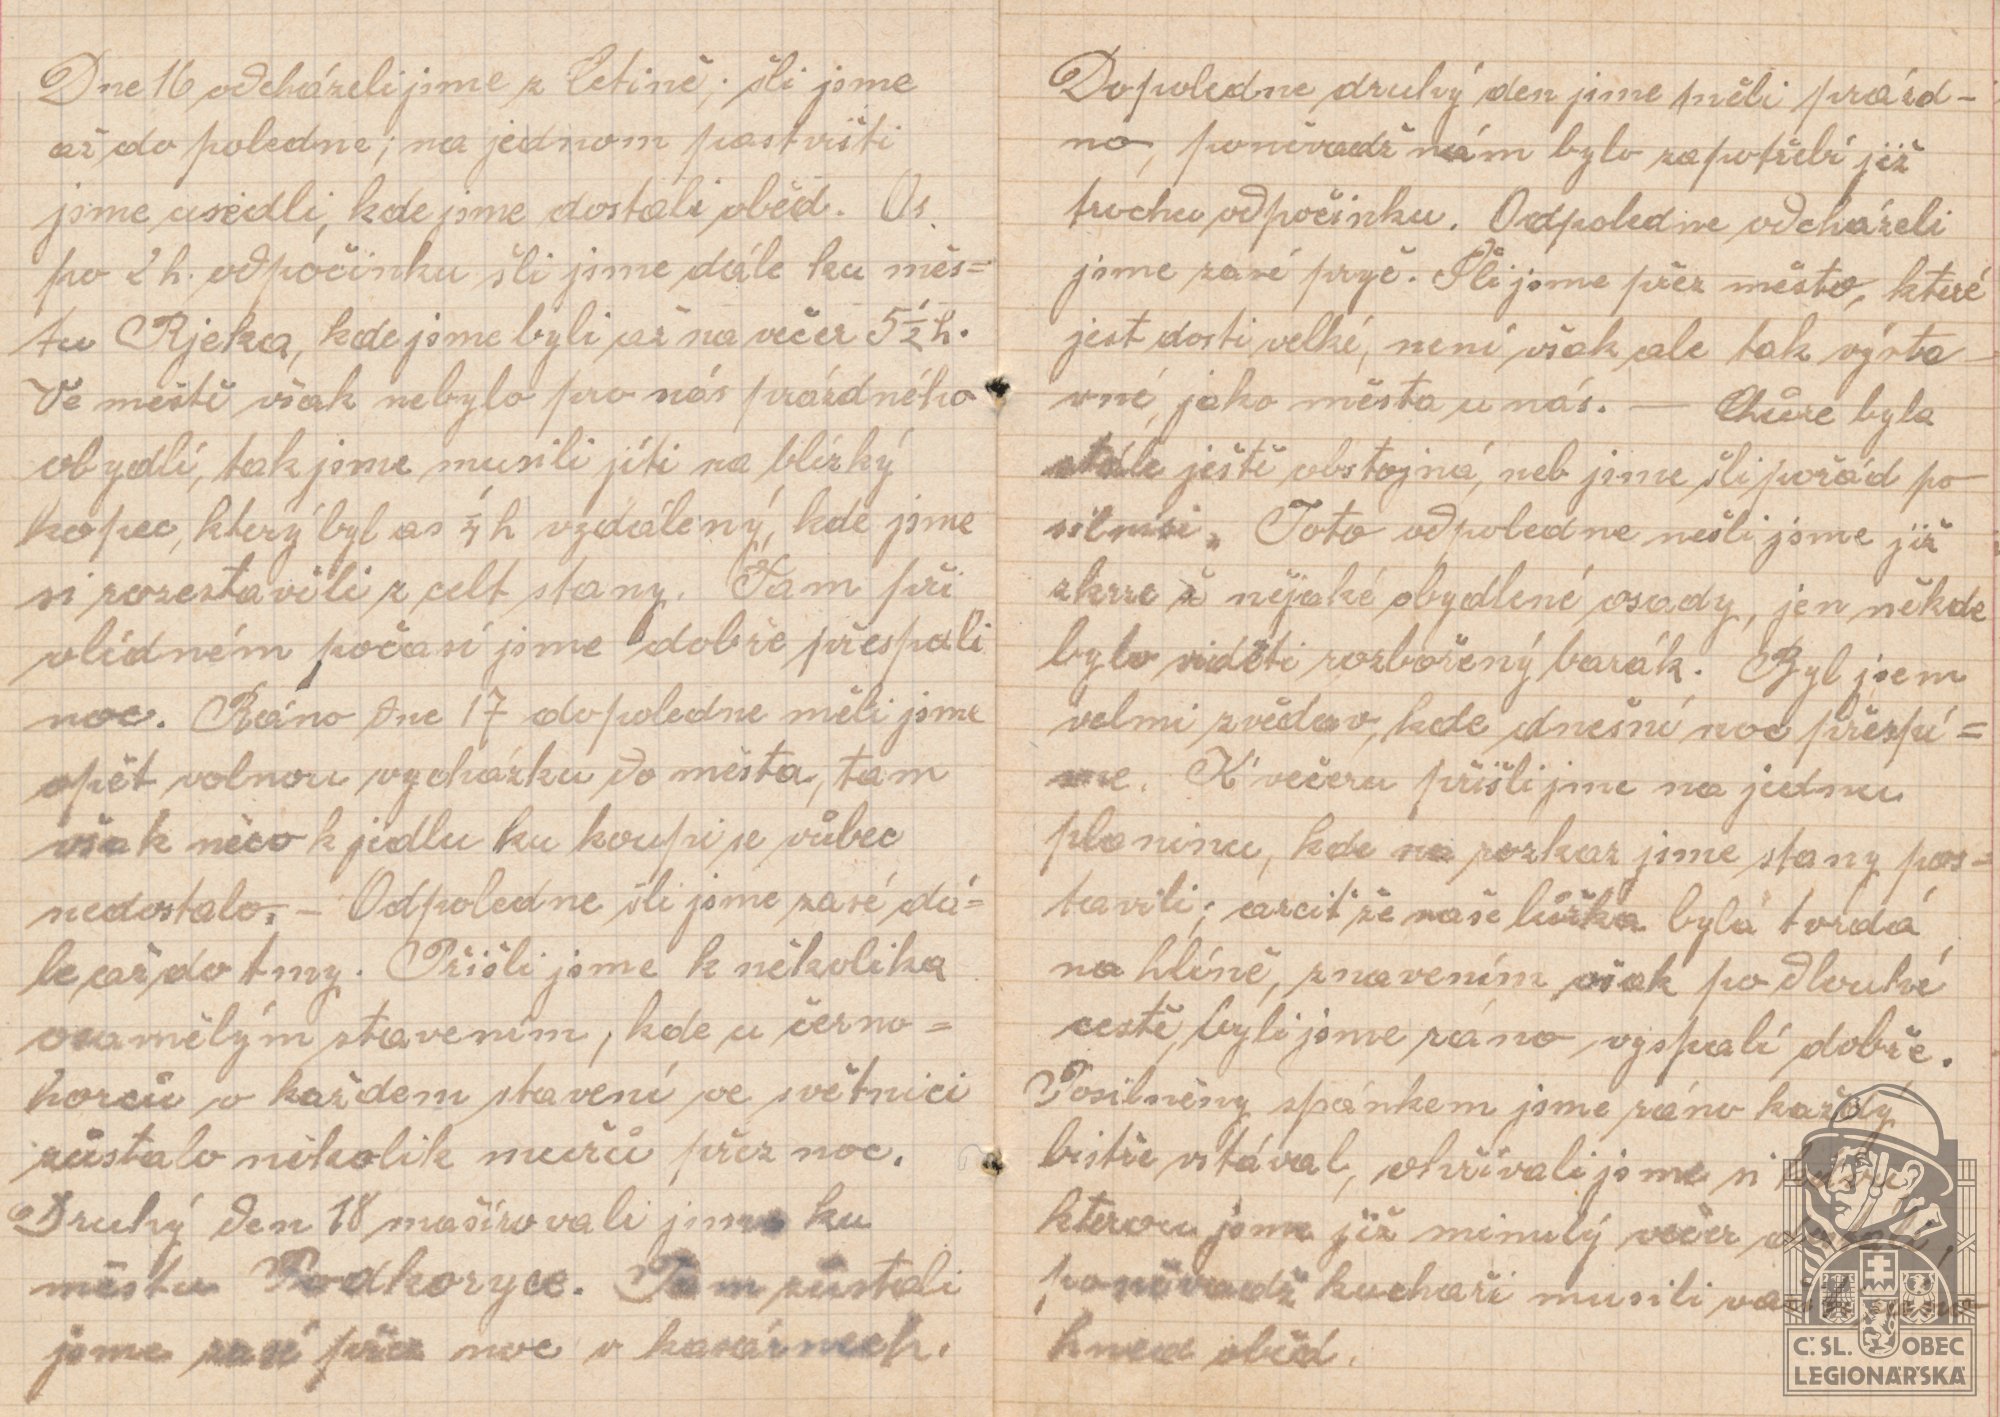 Dne 16 odcházeli jsme z Cetině; šli jsme
až do poledne; na jednom pastvišti
jsme usedli, kde jsme dostali oběd. As
po 2 h. odpočinku šli jsme dále ku měs=
tu Rjeka, kde jsme byli až na večer 5½ h.
Ve městě však nebylo pro nás prázdného
obydlí, tak jsme musili jíti na blízký
kopec, který byl as ¼ h vzdálený, kde jsme
si rozestavili z celt stany. Tam při
vlídném počasí jsme dobře přespali
noc. Ráno dne 17 dopoledne měli jsme
opět volnou vycházku do města, tam
však něco k jídlu ku koupi se vůbec
nedostalo. – Odpoledne šli jsme zasé dá=
le až do tmy. Přišli jsme k několika
osamělým stavením, kde u černo=
horců v každem stavení ve světnici
zůstalo několik mužů přez noc.
Druhý den 18 mašírovali jsme ku
městu Podkoryce. Tam zůstali
jsme zasé přez noc v kasárnech.
Dopoledne druhý den jsme měli prázd-
no, poněvadž nám bylo zapotřebí již
trochu odpočinku. Odpoledne odcházeli
jsme zasé pryč. Šli jsme přez město, které
jest dosti velké, není však ale tak výsta-
vné, jako města u nás. — Chůze byla
stále ještě obstojná, neb jsme šli pořád po
silnici. Toto odpoledne nešli jsme již
zkrze ž nějaké obydlené osady, jen někde
bylo viděti rozbořený barák. Byl jsem
velmi zvědav, kde dnešní noc přespí=
me. K večeru přišli jsme na jednu
planinu, kde na rozkaz jsme stany pos=
tavili; arciť že naše lůžka byla tvrdá
na hlíně, znavením však po dlouhé
cestě, byli jsme ráno vyspalí dobře.
Posilněny spánkem jsme ráno každý
bistře vstával, ohřívali jsme si
kterou jsme již minulý večer
poněvadž kuchaři musili
hned oběd.
C.SL. OBEC
LEGIONÁŘSKÁ